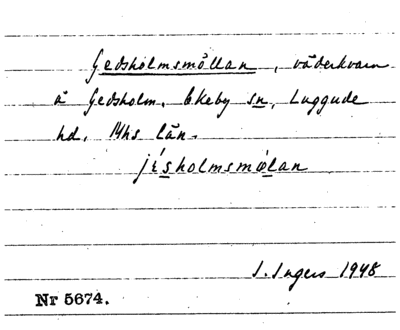 Gedsholmsmöllan, väderkvarn
å Gedsholm, Ekeby sn, Luggude
hd, Mhs län.
jésholmsmölan
I. Ingers 1948
Nr 5674.